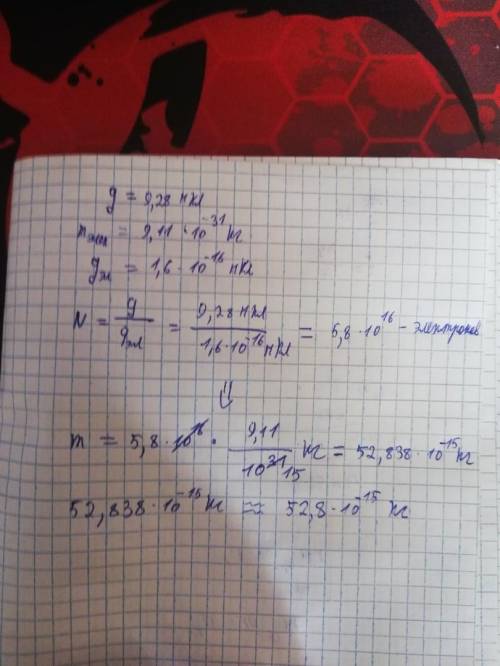 q = 9,28 мкл
mэл = 9,11 · 10⁻³¹ кг
qэл = 1,6 · 10⁻¹⁶ мкл
N = q / qэл = 9,28 мкл / 1,6 · 10⁻¹⁶ мкл = 5,8 · 10¹⁶ - электронов
⇓
m = 5,8 · 10¹⁶ · 9,11 / 10³¹ 15 кг = 52,838 · 10⁻¹⁵ кг
52,838 · 10⁻¹⁵ кг ≈ 52,8 · 10⁻¹⁵ кг